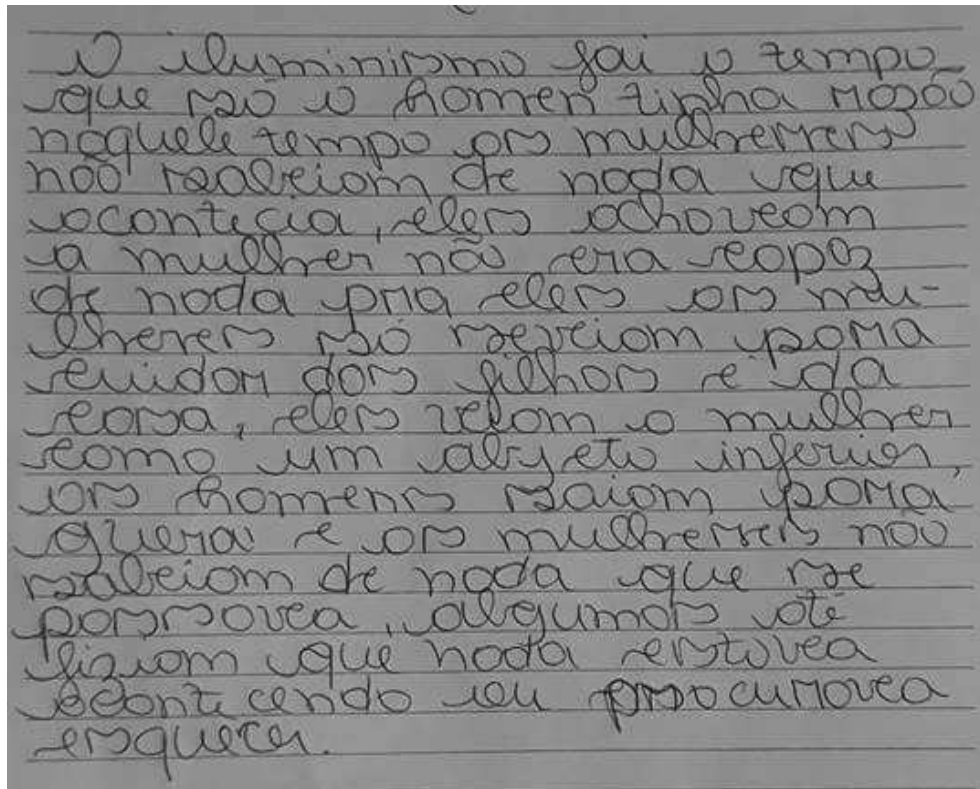 O iluminismo foi o tempo
que só o homen tinha rasão
naquele tempo as mulherers
não sabiam de nada que
acontecia, eles achavam
a mulher não era capaz
de nada pra eles as mu-
lheres só serviam para
cuidar dos filhos e da
casa, eles viam a mulher
como um objeto inferior,
os homens saiam para
guera e as mulheres não
sabiam de nada que se
passava, algumas até
fiziam que nada estava
acontecendo ou procurava
esquecer.